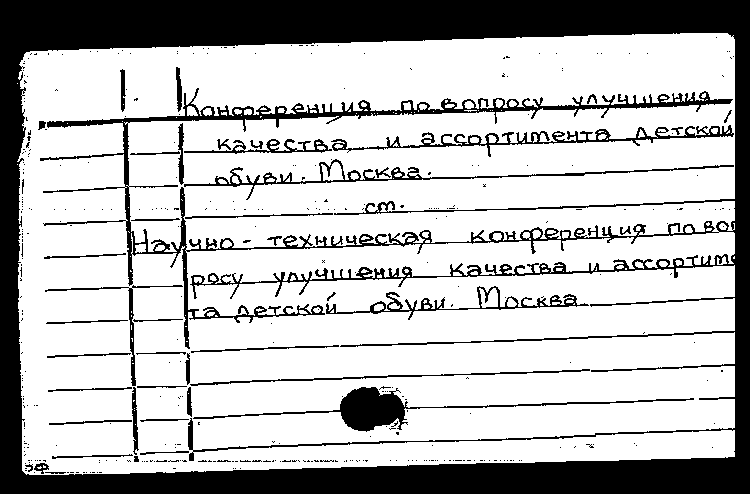 Конференция по вопросу улучшения
качества и ассортимента детской
обуви. Москва.
ст.
Научно-техническая конференция по воп
росу улучшения качества и ассортимe
та детской обуви. Москва
эф